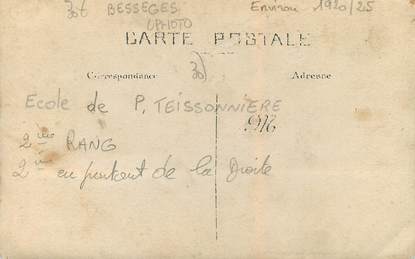 30€ BESSEGES Environ 1920/25
PHOTO
CARTE POSTALE
30
Correspondance Adresse
Ecole de P. TEISSONNIERE
2ème RANG
2ème en partant de la Droite